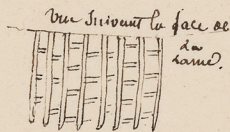 vue suivant la face de
la
lame.